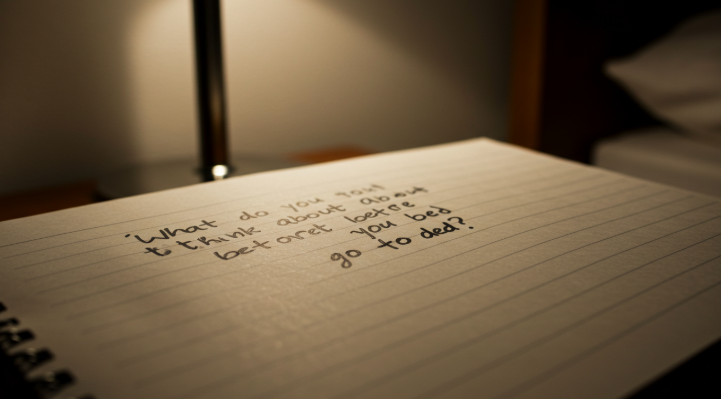 "What do you
t think about about
betoret betre
you bed
go to ded?